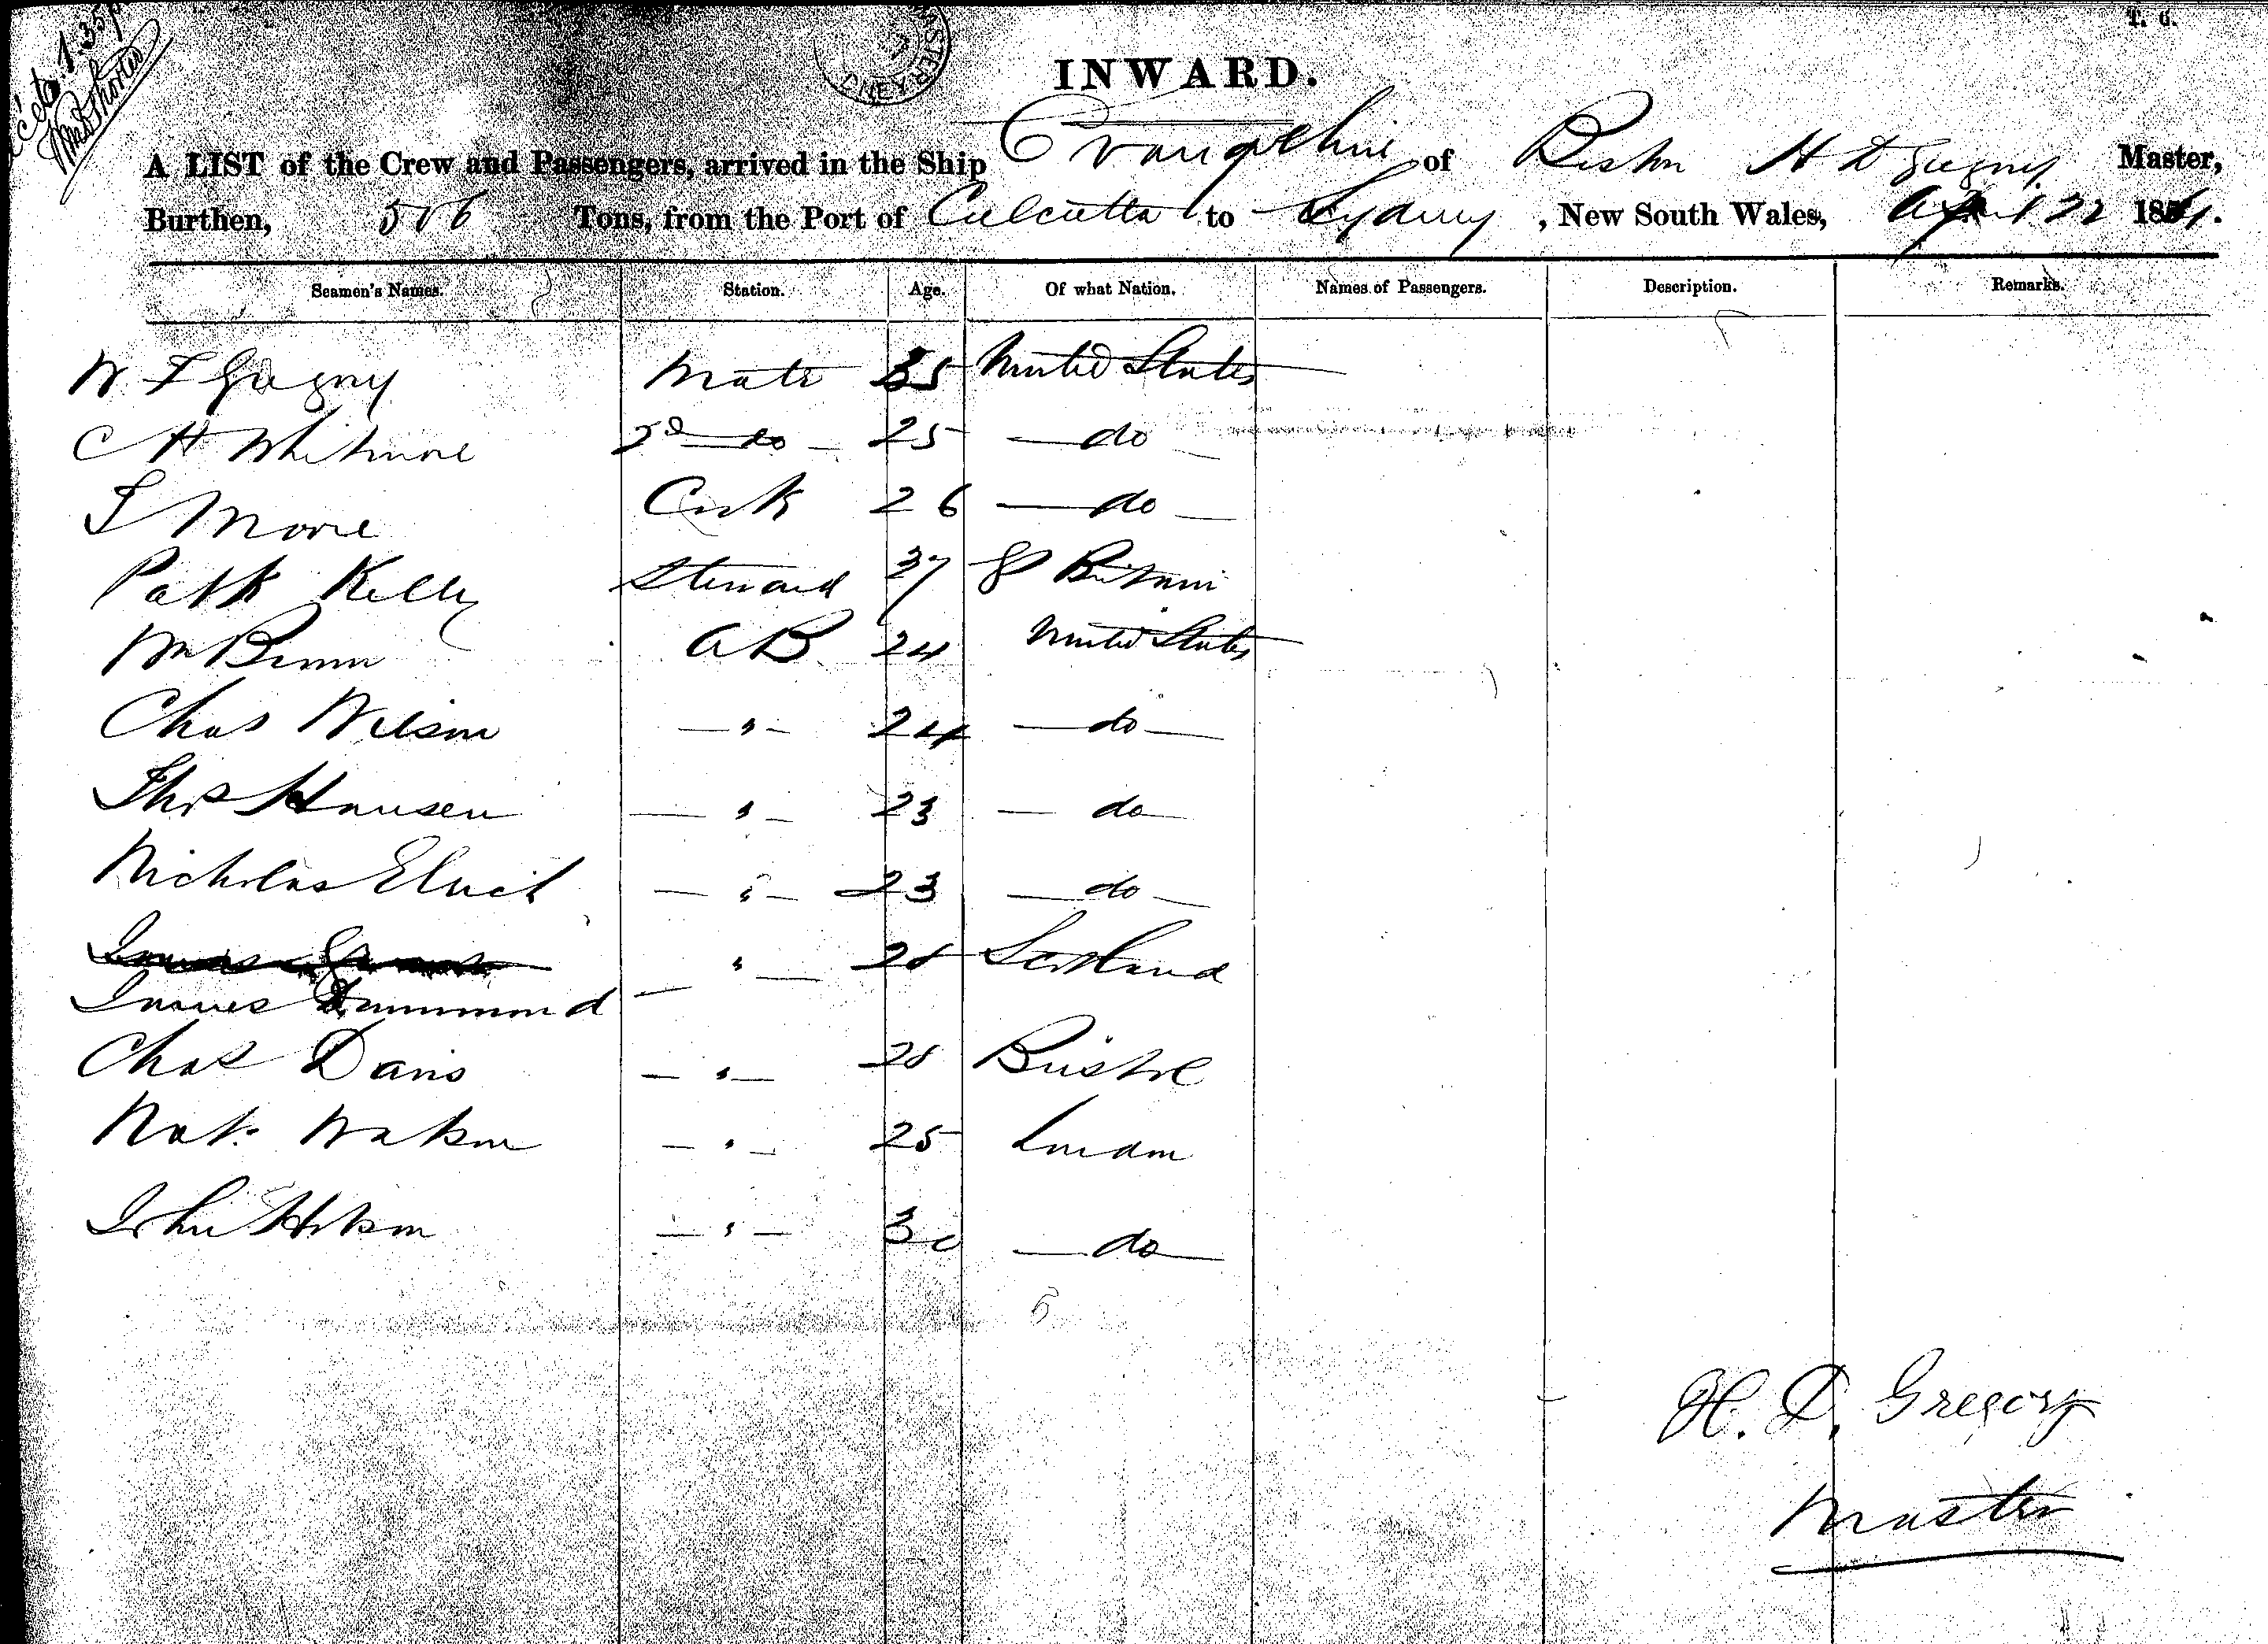 T. 6.
INWARD.
A LIST of the Crew and Passengers, arrived in the Ship Evangeline of Boston H D Gregory Master,
Burthen, 506 Tons, from the Port of Calcutta to Sydney, New South Wales, April 22 1861.
Seamen's Names. Station. Age. Of what Nation. Names of Passengers. Description. Remarks.
W F Gregory Mate 35 United States
C H Whitmore 2d do 25 do
S Moore Cook 26 do
Patk Kelly Steward 37 G Britain
Wm Brown AB 24 United States
Chas Wilson " 24 do
Thos Hansen " 23 do
Nicholas " 23 do
James " 28 Scotland
James Drummond
Chas Davis " 28 Bristol
Watson " 25 London
John " 30 do
H. D. Gregory
Master